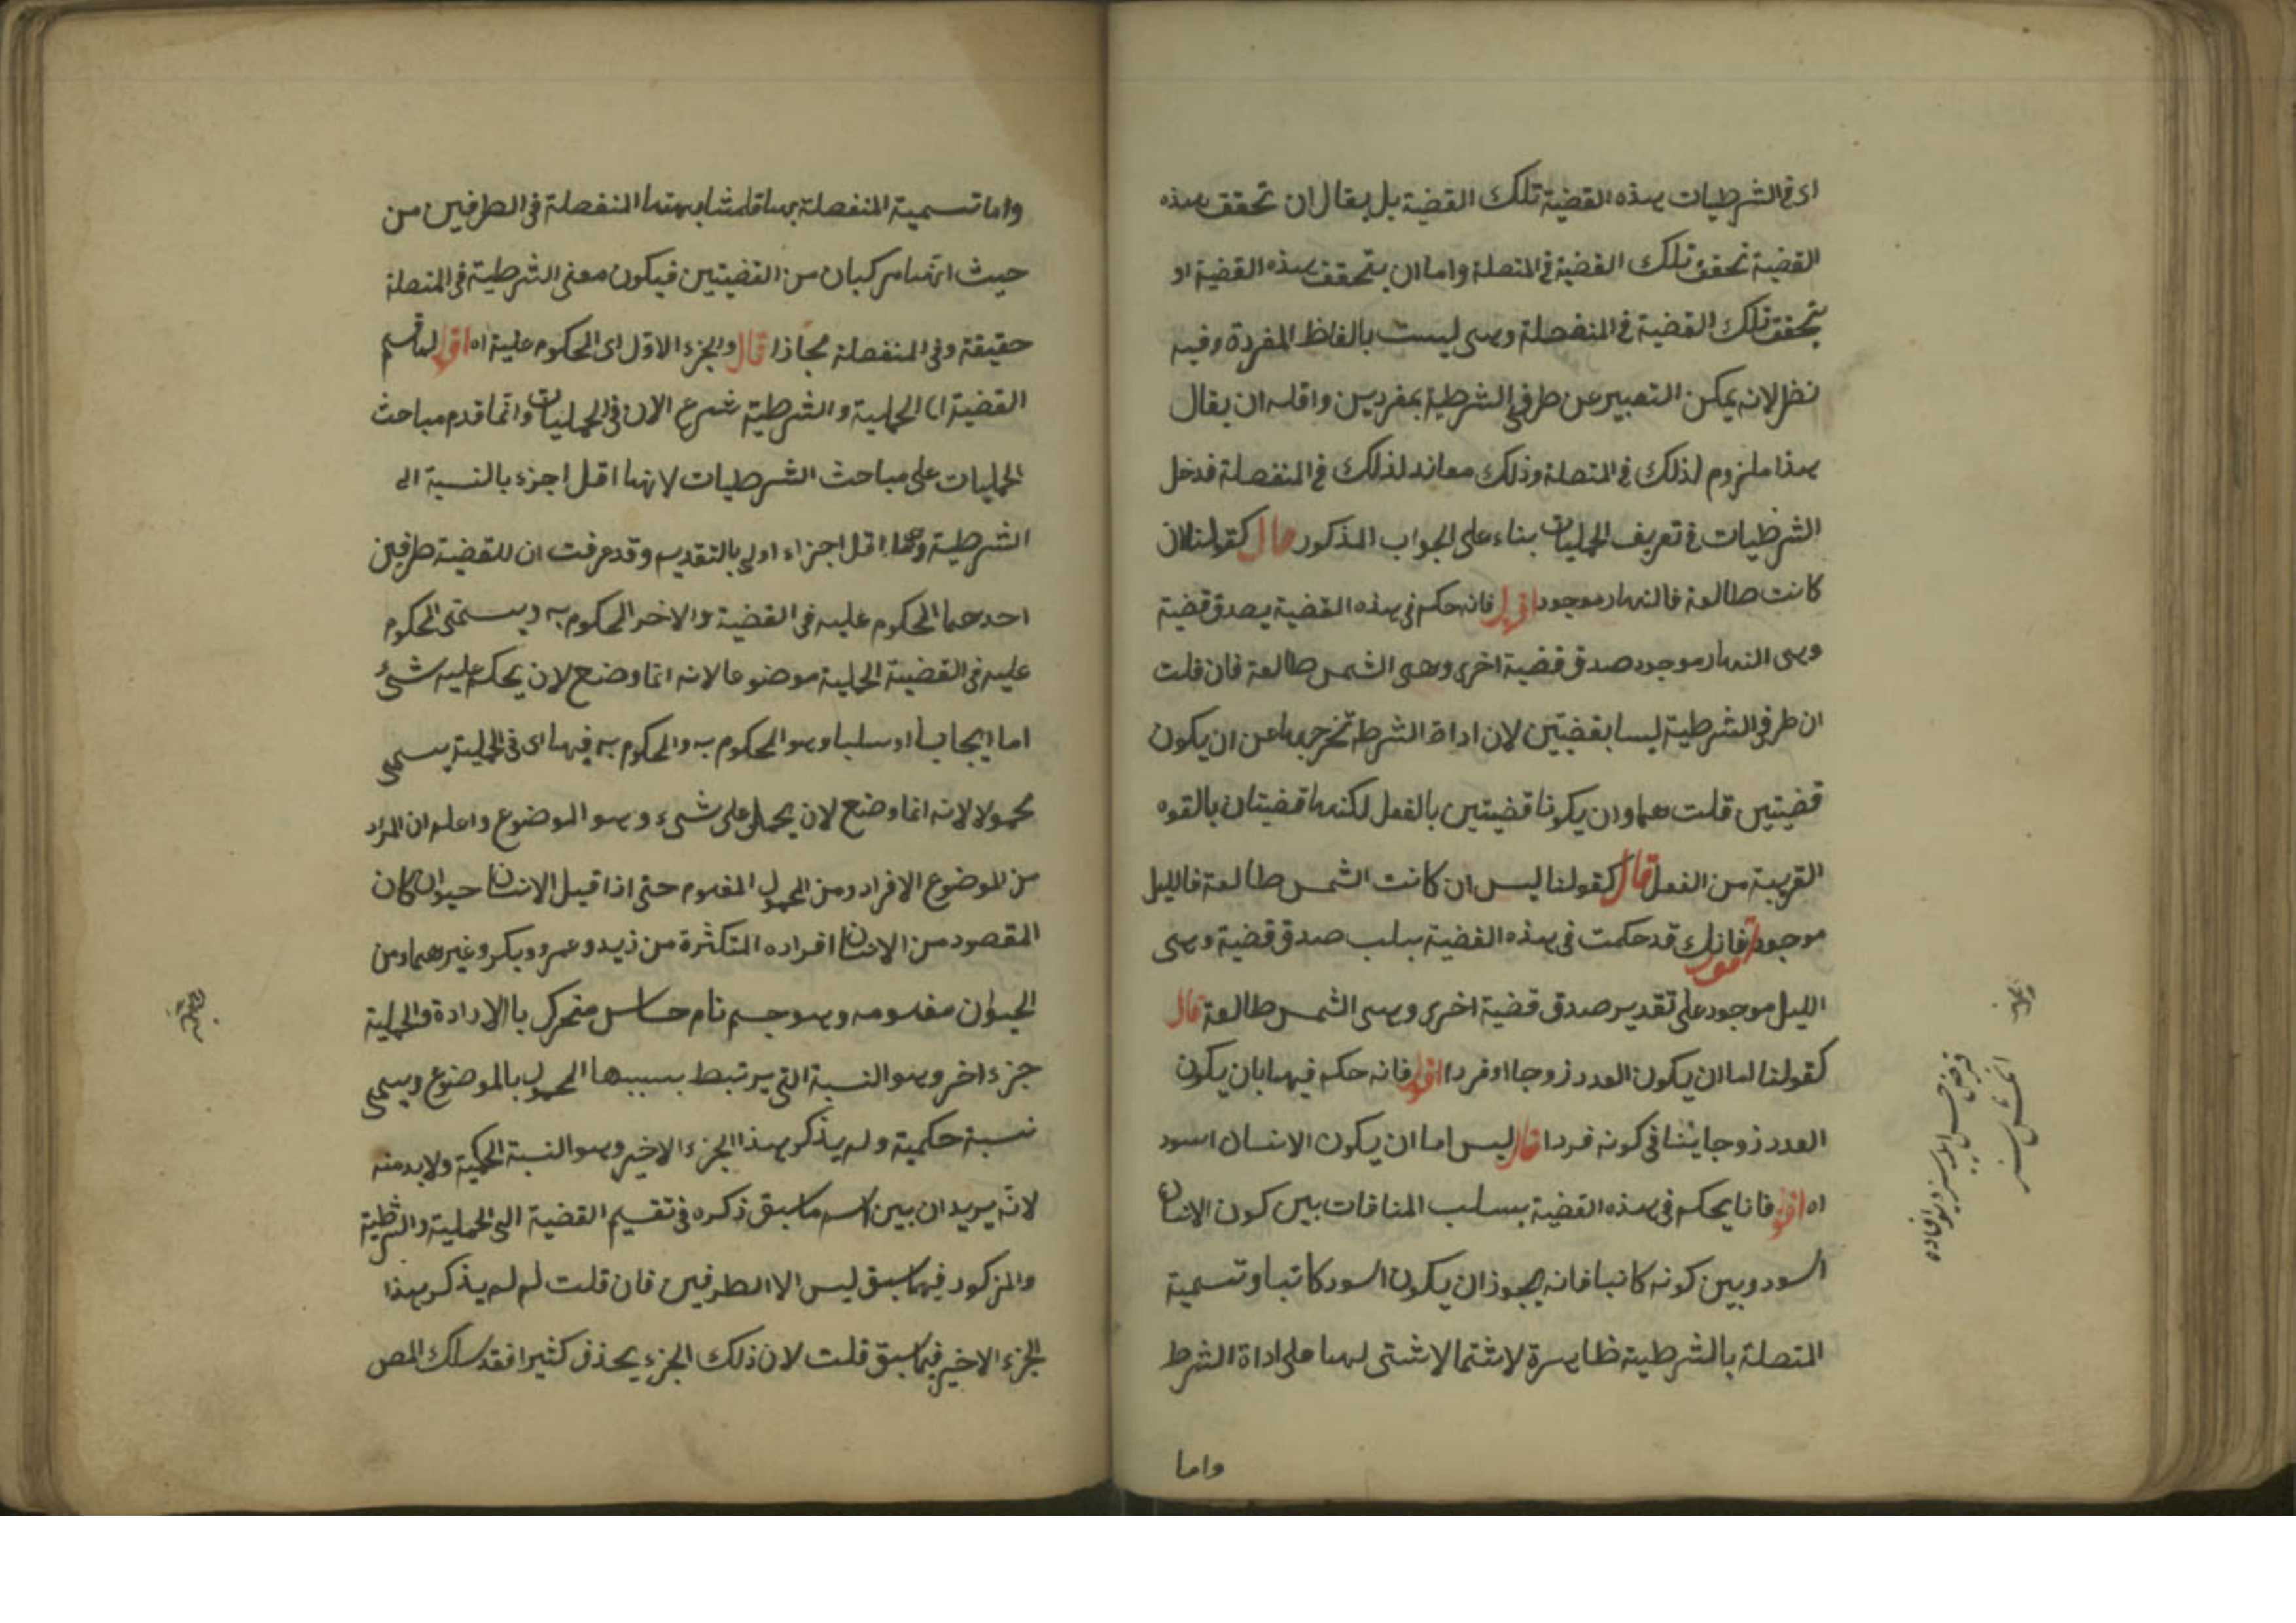 اى فى الشرطيات هذه القضية تلك القضية بل يقال ان تحقق هذه
القضية تحقق تلك القضية فى المتصلة واما ان يتحقق هذه القضية او
يتحقق تلك القضية فى المنفصلة وهى ليست بالفاظ المفردة وفيه
نظر لانه يمكن التعبير عن طرفى الشرطية بمفردين واقله ان يقال
هذا ملزوم لذلك فى المتصلة وذلك معاند لذلك فى المنفصلة فدخل
الشرطيات فى تعريف الحمليات بناء على الجواب المذكور قال كقولنا ان
كانت طالعة فالنهار موجود اقول فانه حكم فى هذه القضية بصدق قضية
وهى النهار موجود صدق قضية اخرى وهى الشمس طالعة فان قلت
ان طرفى الشرطية ليسا بقضيتين لان اداة الشرط تخرجهما عن ان يكون
قضيتين قلت هما وان يكونا قضيتين بالفعل لكنهما قضيتان بالقوه
القريبة من الفعل قال كقولنا ليس ان كانت الشمس طالعة فالليل
موجود اقول فانك قد حكمت فى هذه القضية بسلب صدق قضية وهى
الليل موجود على تقدير صدق قضية اخرى وهى الشمس طالعة قال
كقولنا اما ان يكون العدد زوجا او فردا اقول فانه حكم فيها بان يكون
العدد زوجا ينافى كونه فردا قال ليس اما ان يكون الانسان اسود
اه اقول فانا يحكم فى هذه القضية بسلب المنافات بين كون الانسان
اسود وبين كونه كاتبا فانه يجوز ان يكون اسود كاتبا وتسمية
المتصلة بالشرطية ظاهرة لاشتمالا شتى لها على اداة الشرط
واما
واما تسمية المنفصلة بها فلمشابهتها المنفصلة فى الطرفين من
حيث انهما مركبان من القضيتين فيكون معنى الشرطية فى المتصلة
حقيقة وفى المنفصلة مجازا قال والجزء الاول اى المحكوم عليه اه اقول لما قسم
القضية الى الحملية والشرطية شرع الان فى الحمليات وانما قدم مباحث
الحمليات على مباحث الشرطيات لانها اقل اجزء بالنسبة الى
الشرطية وما اقل اجزاء اولى بالتقديم وقد عرفت ان للقضية طرفين
احدهما المحكوم عليه فى القضية والاخر المحكوم به ويسمى المحكوم
عليه فى القضية الحملية موضوعا لانه انما وضع لان يحكم عليه شئ
اما ايجابا او سلبا وهو المحكوم به والمحكوم به فيها اى فى الحملية يسمى
محمولا لانه انما وضع لان يحمل على شىء وهو الموضوع واعلم ان المراد
من الموضوع الافراد ومن المحمول المفهوم حتى اذا قيل الانسان حيوان كان
المقصود من الانسان افراده المتكثرة من زيد وعمرو وبكر وغيرهما ومن
الحيوان مفهومه وهو جسم نام حساس متحرك باالارادة والحملية
جزء اخر وهو النسبة التى يرتبط بسببها المحمول بالموضوع ويسمى
نسبة حكمية ولم يذكر هذا الجزء الاخير وهو النسبة الحكمية ولابد منه
لانه يريد ان يبين اسم ما سبق ذكره فى تقسيم القضية الى الحملية والشرطية
والمزكور فيما سبق ليس الا الطرفين فان قلت لم لم يذكر هذا
الجزء الاخير فيما سبق قلت لان ذلك الجزء يحذف كثيرا فقد سلك المص